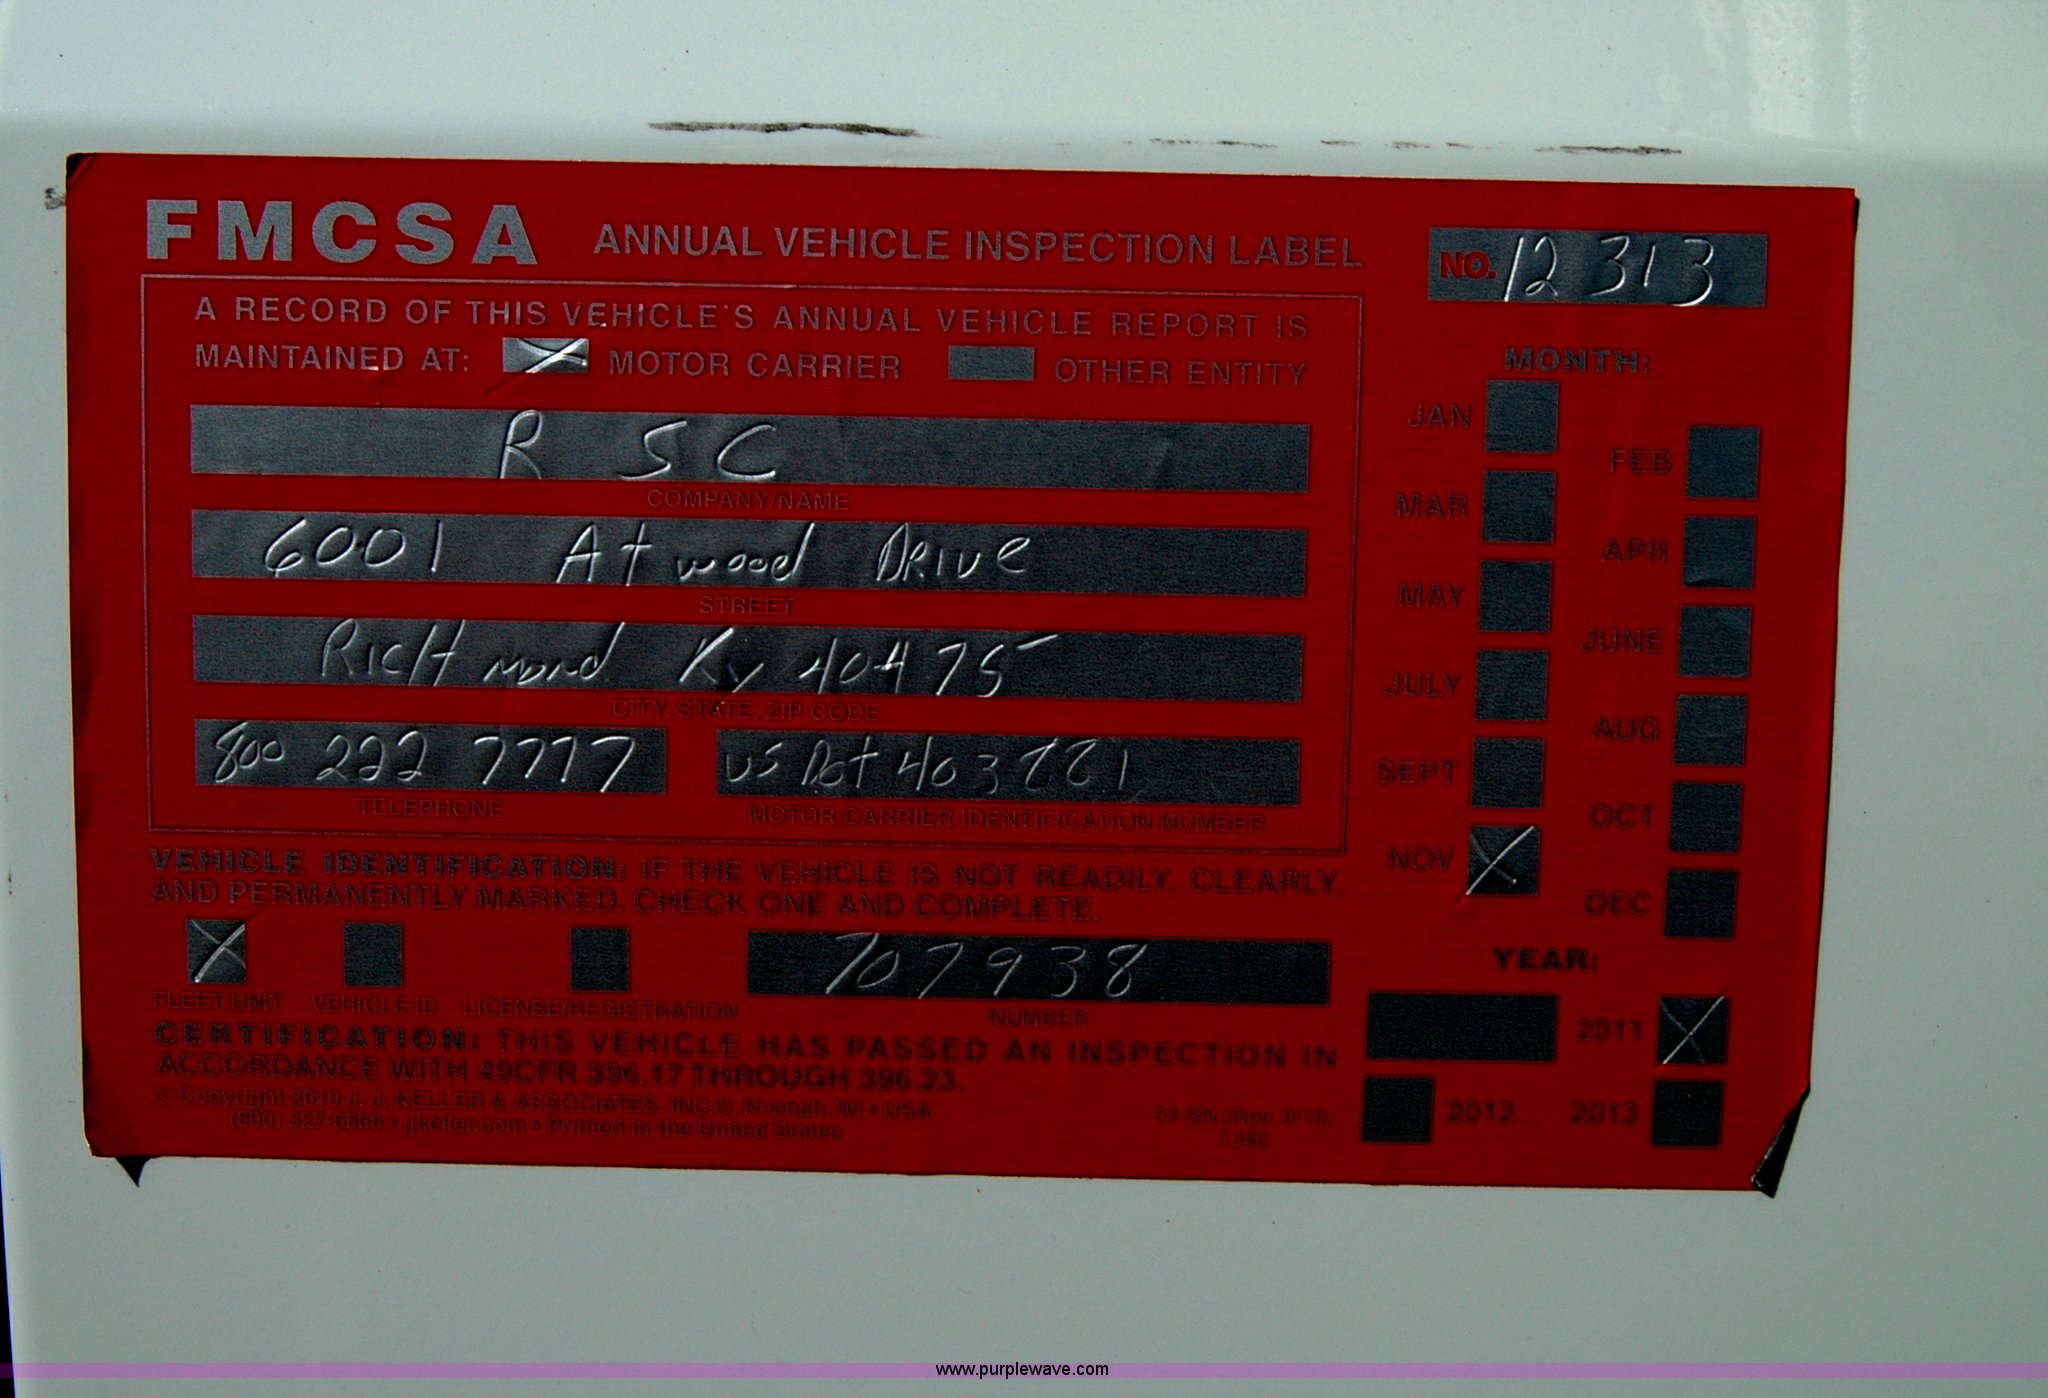 FMCSA ANNUAL VEHICLE INSPECTION LABEL
NO. 12313
A RECORD OF THIS VEHICLE'S ANNUAL VEHICLE REPORT IS
MAINTAINED AT: X MOTOR CARRIER OTHER ENTITY
R S C
COMPANY/NAME
6001 Atwood Drive
STREET
RicHmond Ky 40475
CITY, STATE, ZIP CODE
800 222 7777
TELEPHONE
US Dot 403221
MOTOR CARRIER IDENTIFICATION NUMBER
VEHICLE IDENTIFICATION: IF THE VEHICLE IS NOT READILY, CLEARLY,
AND PERMANENTLY MARKED, CHECK ONE AND COMPLETE.
X 707938
FLEET UNIT VEHICLE ID LICENSE/REGISTRATION NUMBER
CERTIFICATION: THIS VEHICLE HAS PASSED AN INSPECTION IN
ACCORDANCE WITH 49CFR 396.17 THROUGH 396.23.
© Copyright 2010 J. J. KELLER & ASSOCIATES, INC.®, Neenah, WI • USA
(800) 327-6868 • jjkeller.com • Printed in the United States
54-SN (Rev. 9/10)
1340
MONTH:
JAN
FEB
MAR
APR
MAY
JUNE
JULY
AUG
SEPT
OCT
NOV X
DEC
YEAR:
2011 X
2012 2013
www.purplewave.com